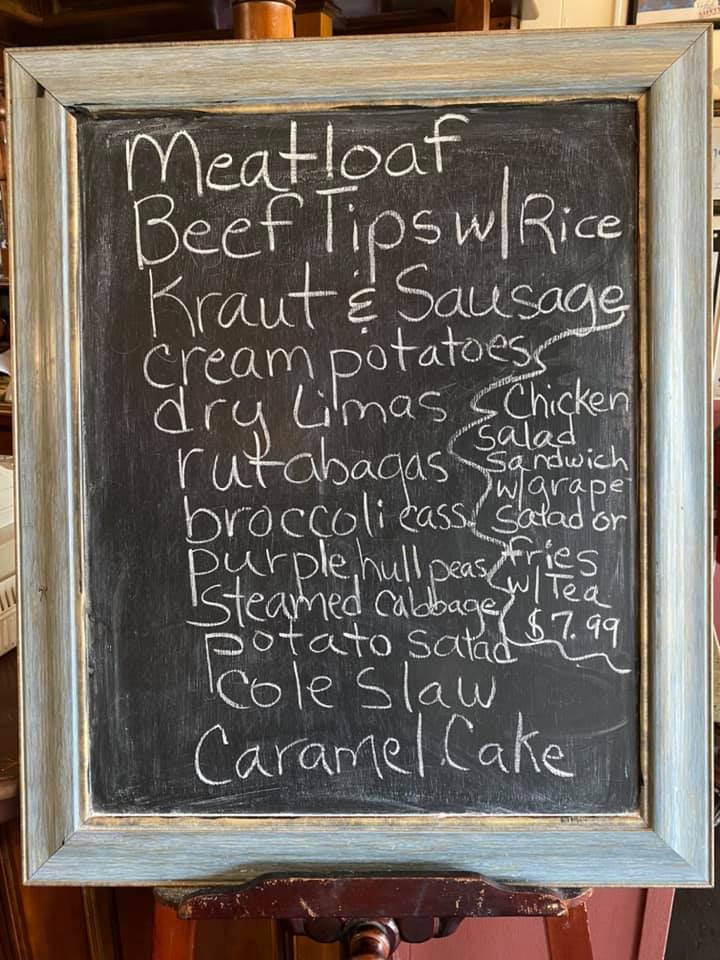 Meatloaf
Beef Tips w/ Rice
Kraut & Sausage
cream potatoes
dry Limas
rutabagas
broccoli cass
purple hull peas
Steamed Cabbage
potato salad
Cole Slaw
Caramel Cake
Chicken
salad
sandwich
w/grape
salad or
fries
w/ Tea
$7.99